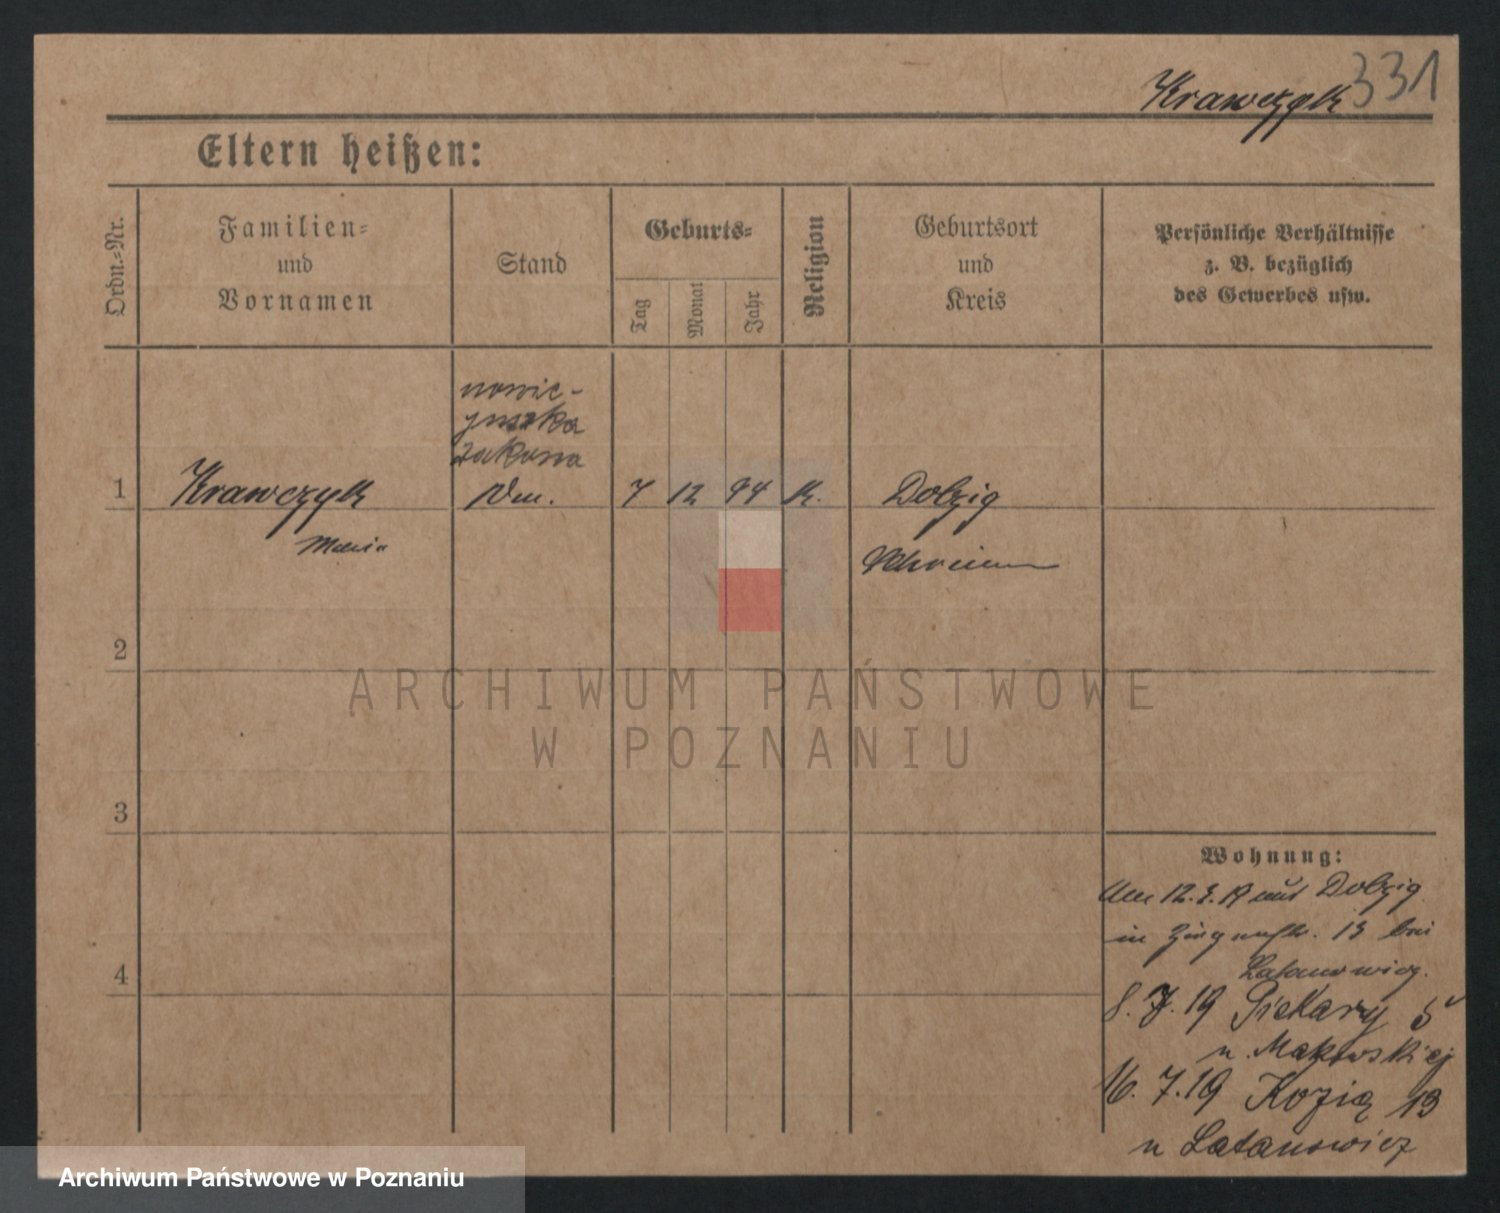 Krawczyk 331
Eltern heißen:
Ordn.-Nr.
Familien-
und
Vornamen
Stand
Geburts-
Tag
Monat
Jahr
Religion
Geburtsort
und
Kreis
Persönliche Verhältnisse
z. B. bezüglich
des Gewerbes usw.
1 Krawczyk 7 12 94 k. Dolzig
Maria Schrimm
2
3
4
ARCHIWUM PAŃSTWOWE
W POZNANIU
Wohnung:
12. 19 aus Dolzig
in 13 bei
Latanowicz.
8. 7. 19 Piekary 5
u. Makowskiej
16. 7. 19 Kozia 13
u Latanowicz
Archiwum Państwowe w Poznaniu